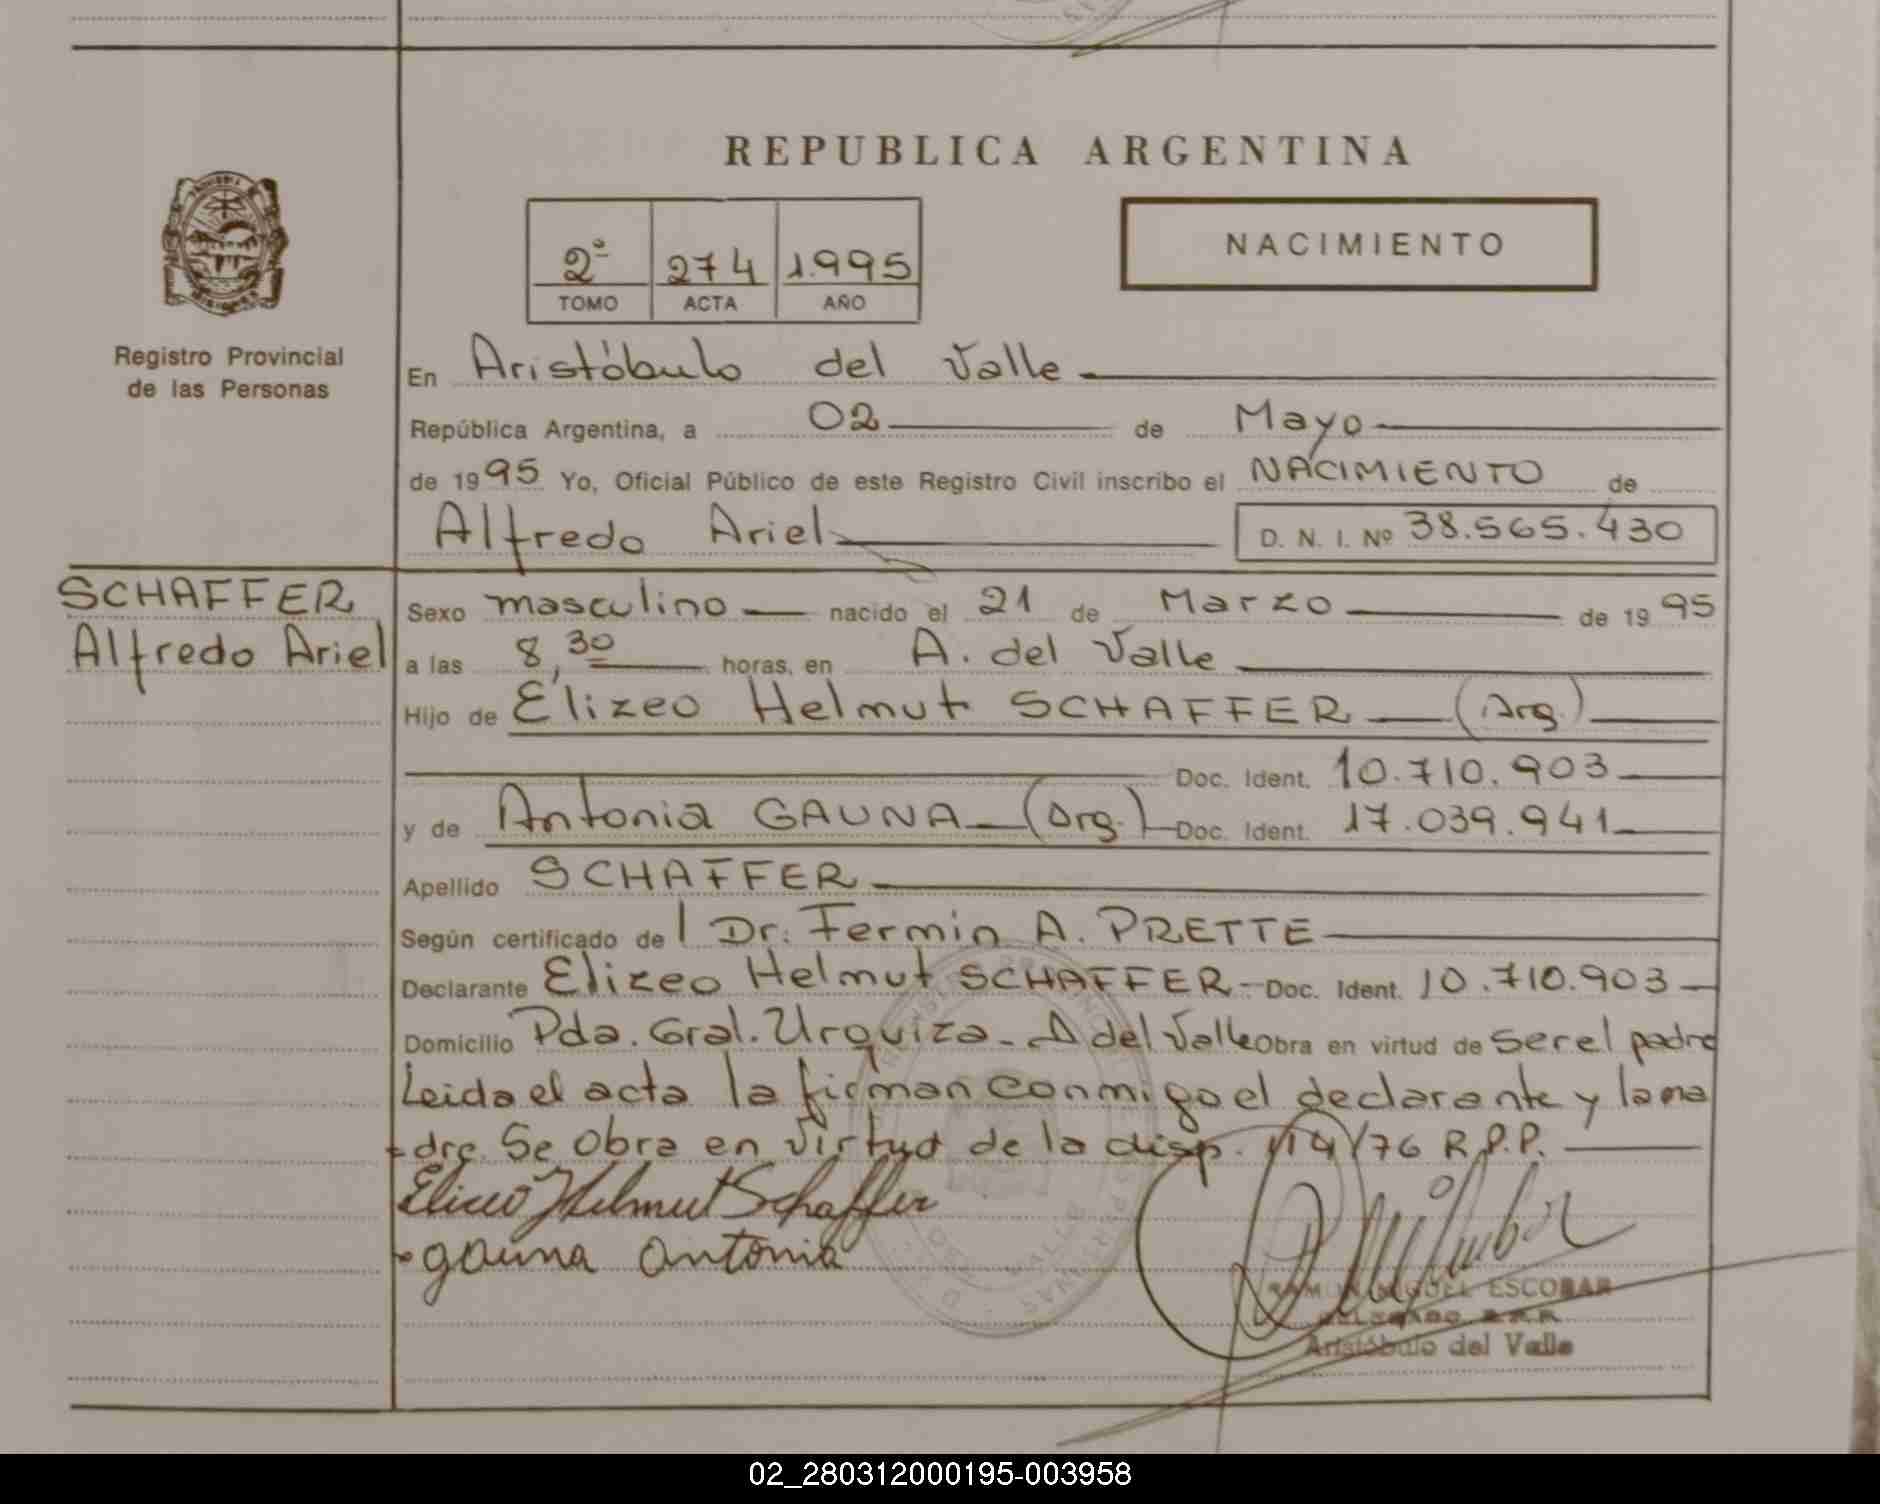 REPUBLICA ARGENTINA
NACIMIENTO
2º 274 1.995
TOMO ACTA AÑO
Registro Provincial
de las Personas
En Aristóbulo del Valle
República Argentina, a 02 de Mayo
de 1995 Yo, Oficial Público de este Registro Civil inscribo el NACIMIENTO de
Alfredo Ariel D. N. I. Nº 38.565.430
SCHAFFER
Alfredo Ariel
Sexo masculino nacido el 21 de Marzo de 1995
a las 8,30 horas, en A. del Valle
Hijo de Elizeo Helmut SCHAFFER (Arg.)
Doc. Ident. 10.710.903
y de Antonia GAUNA (Arg.) Doc. Ident. 17.039.941
Apellido SCHAFFER
Según certificado de l Dr. Fermin A. PRETTE
Declarante Elizeo Helmut SCHAFFER- Doc. Ident. 10.710.903
Domicilio Pda. Gral. Urquiza - A del Valle obra en virtud de ser el padre
Leida el acta la firman conmigo el declarante y la ma
-dre. Se obra en virtud de la disp. 114/76 R.P.P.
Eliceo Helmut Schaffer
gauna antonia
RAMON MIGUEL ESCOBAR
Aristóbulo del Valle
02_280312000195-003958